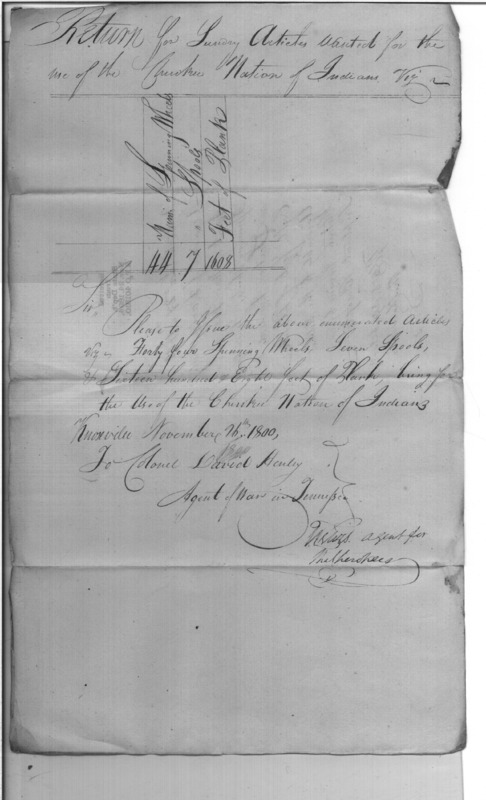 Return for Sundry Articles Wanted for the
use of the Cherokee Nation of Indians Viz
Num: of Spinning Wheels
Spools
Feet of Plank
44 7 1608
Sir,
Please to Issue the above enumerated Articles
Viz Forty four Spinning Wheels Seven Spools,
& Sixteen hundred & Eight feet of Plank being for
the Use of the Cherokee Nation of Indians
Knoxville November 1800,
To Colonel David Henley
Agent of War in Tennessee
agent for
the Cherokees